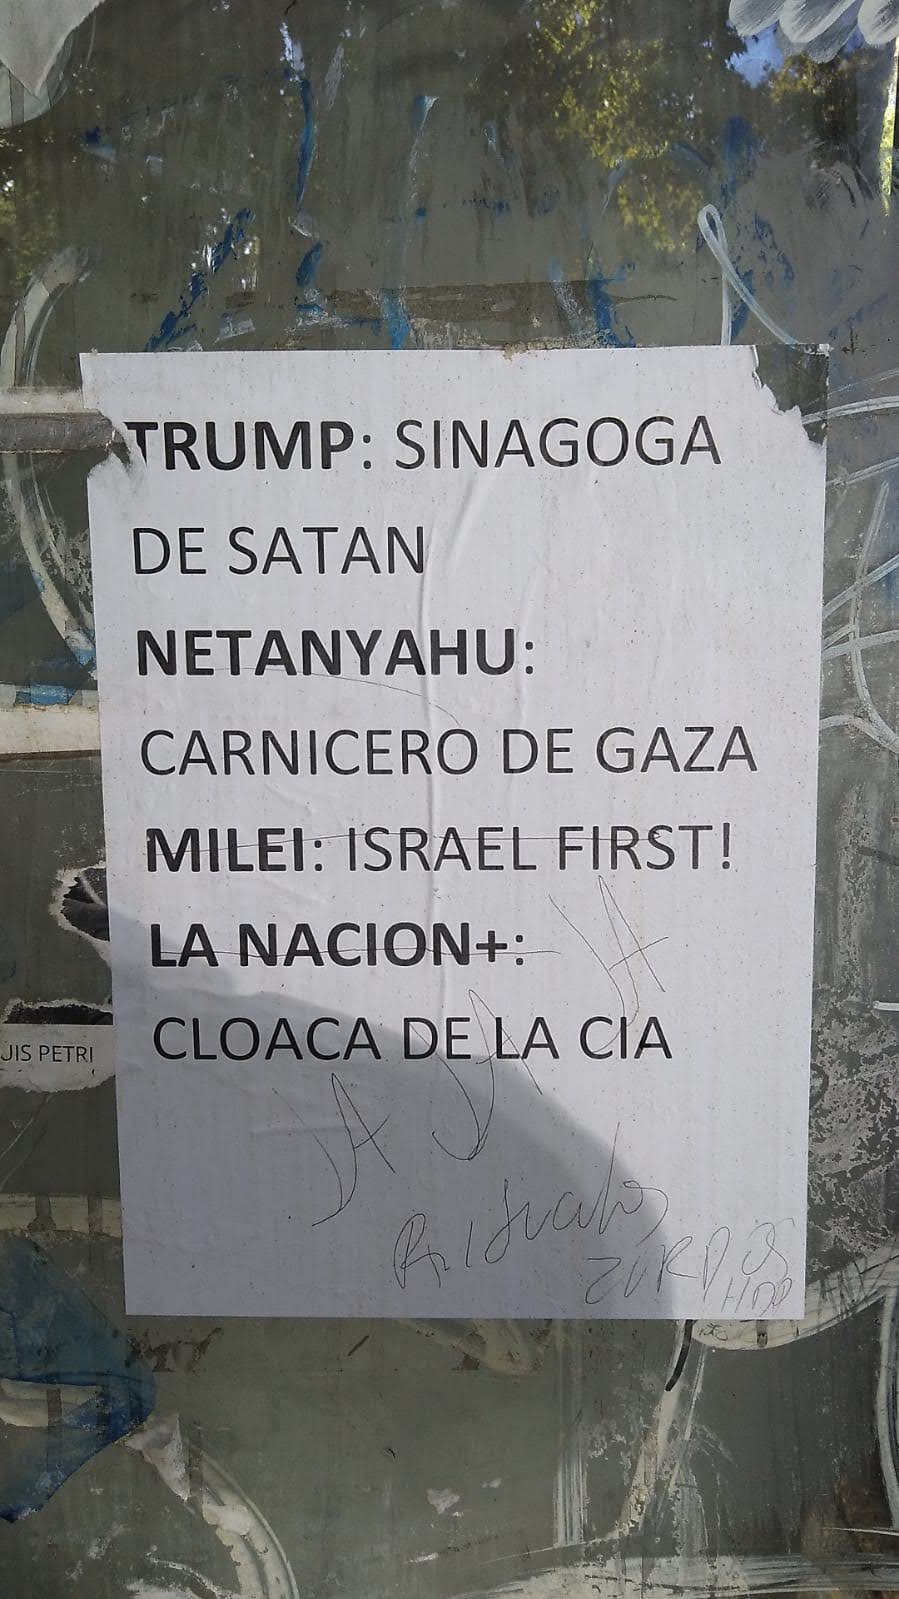 TRUMP: SINAGOGA
DE SATAN
NETANYAHU:
CARNICERO DE GAZA
MILEI: ISRAEL FIRST!
LA NACION+:
CLOACA DE LA CIA
UIS PETRI
JA JA JA
ZURDOS
HDP